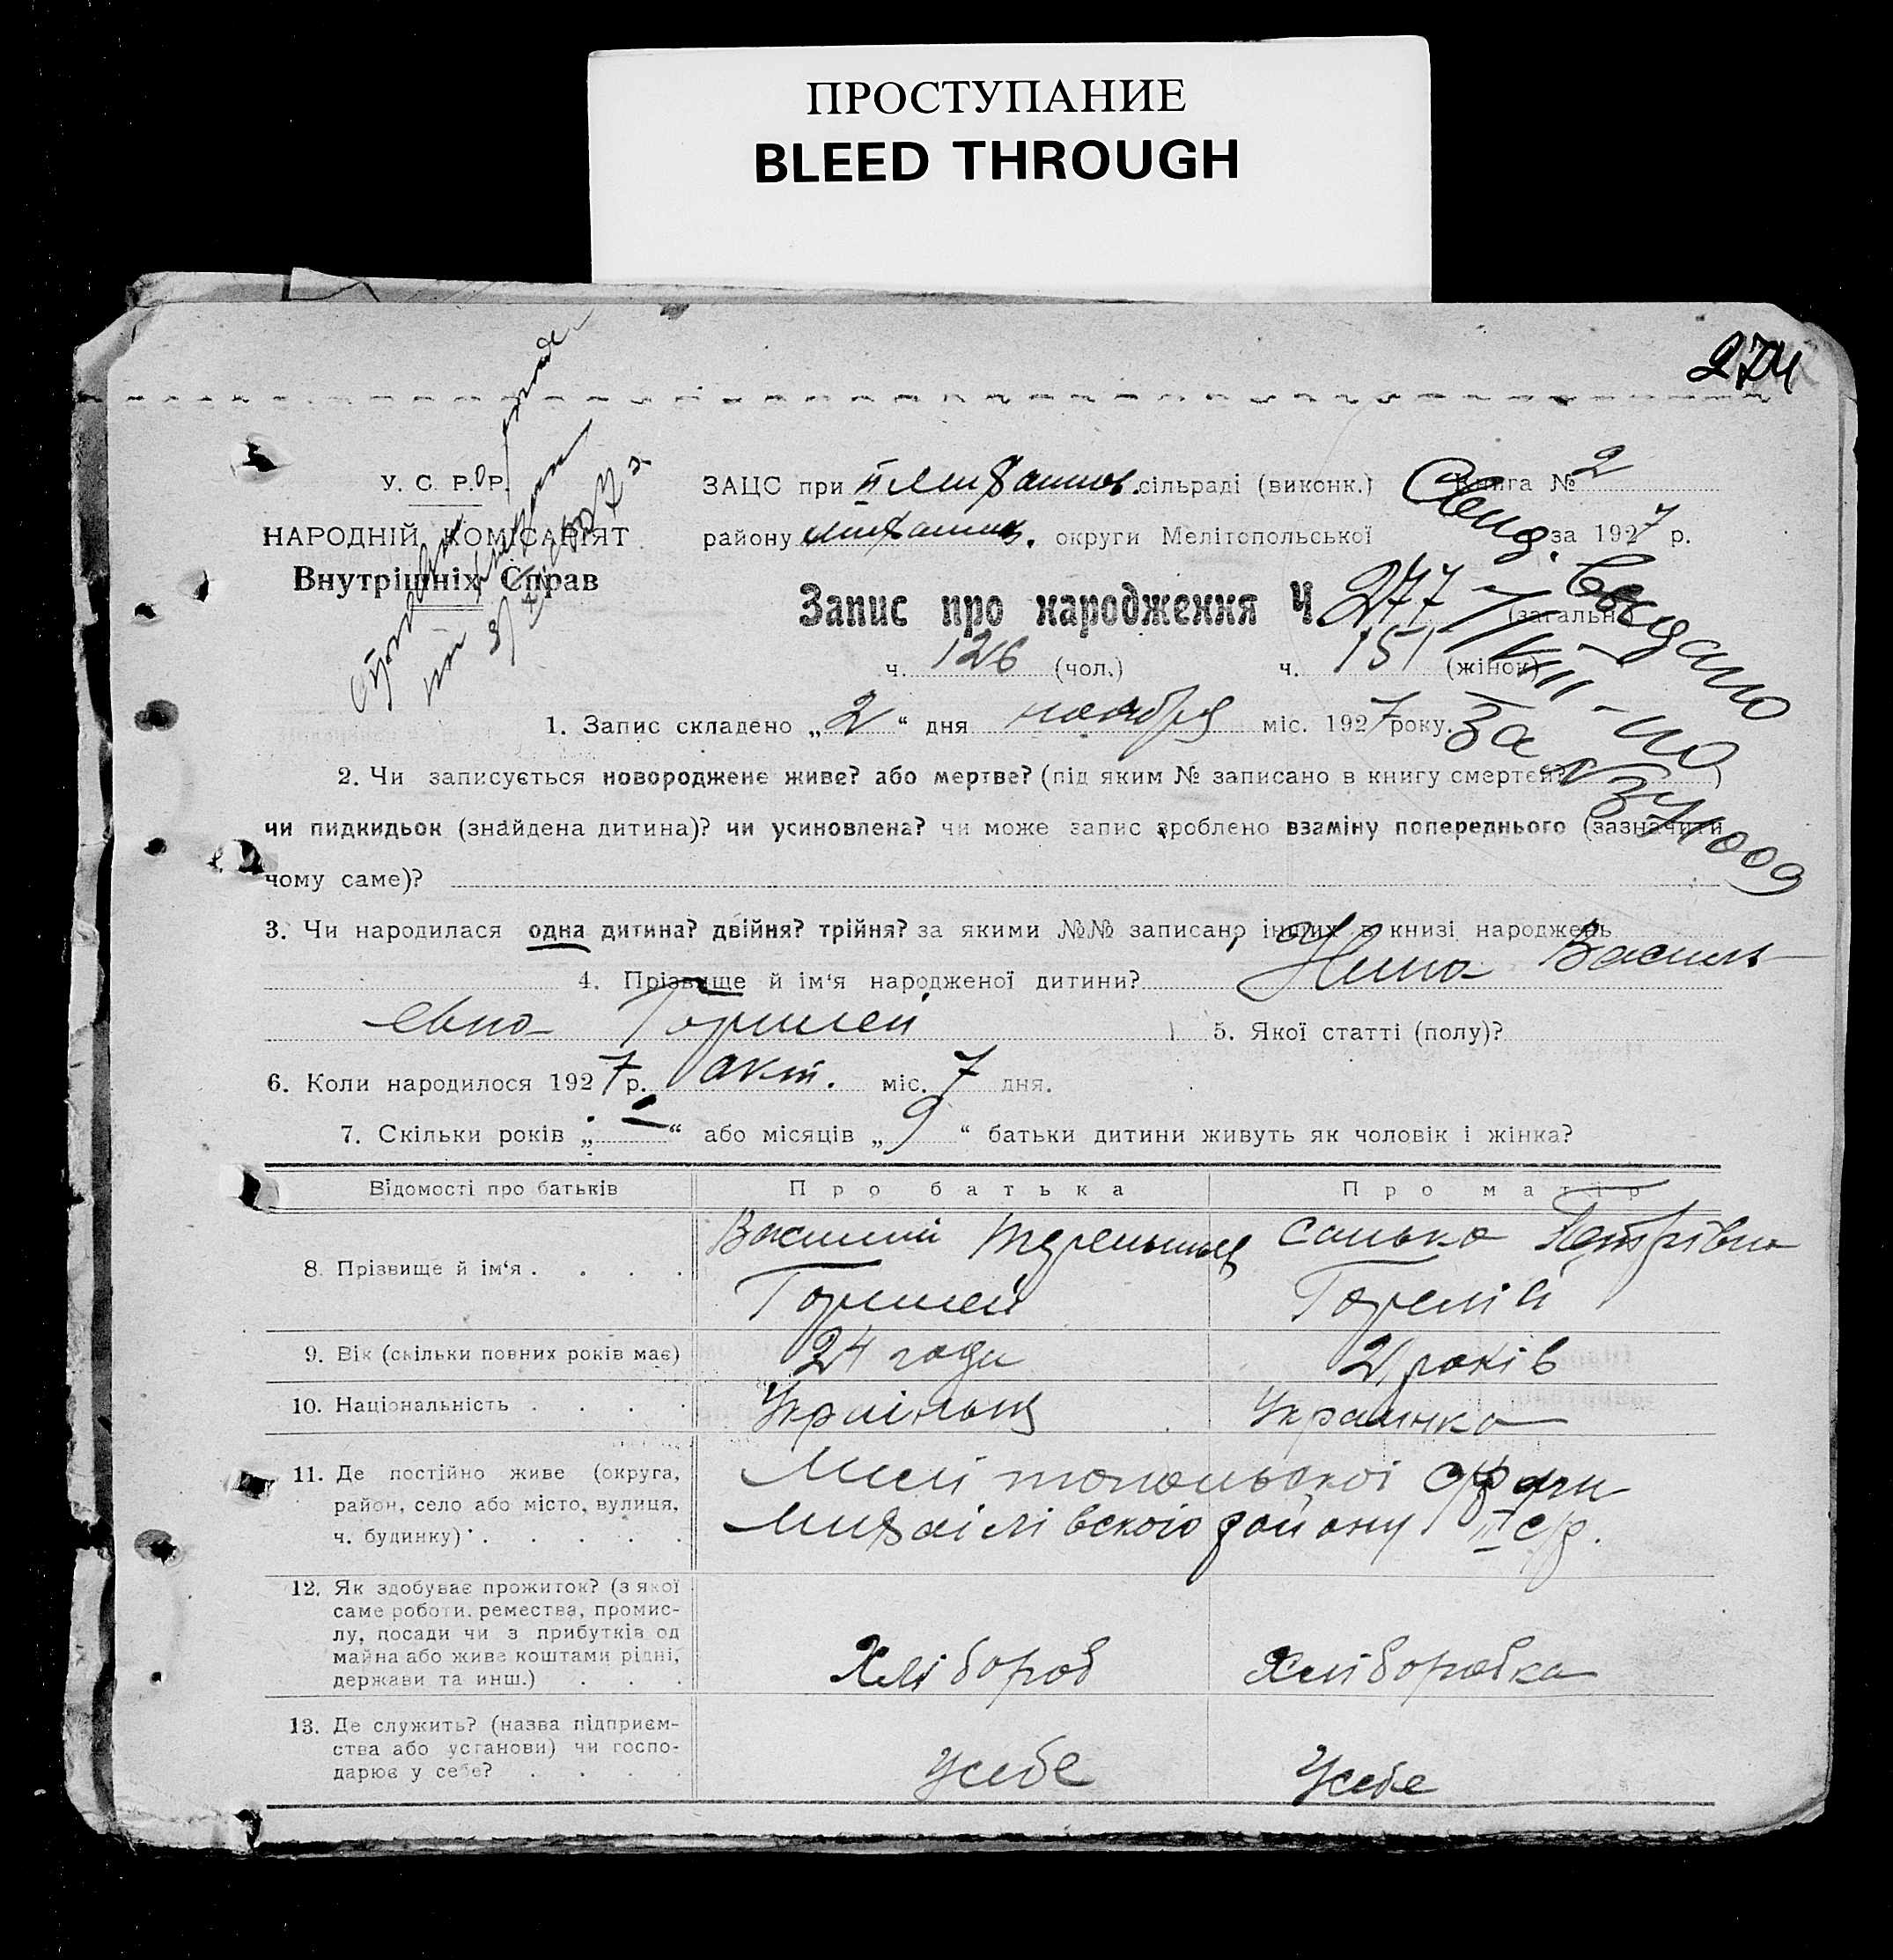 ПРОСТУПАНИЕ
BLEED THROUGH
274
У. С. Р. Р.
НАРОДНІЙ КОМІСАРІЯТ
Внутрішніх Справ
ЗАЦС при II Михайлов. сільраді (виконк.) Книга № 2
району Михайлів. округи Мелітопольської за 1927 р.
Запис про народження Ч 277 (загальн.
ч. 126 (чол.) ч. 151 (жінок)
Свид. выдано
за № 371009
1. Запис складено „2“ дня ноября міс. 1927 року.
2. Чи записується новороджене живе? або мертве? (під яким № записано в книгу смертей?
чи пидкидьок (знайдена дитина)? чи усиновлена? чи може запис зроблено взаміну попереднього (зазначити
чому саме)?
3. Чи народилася одна дитина? двійня? трійня? за якими №№ записано інших в книзі народжень
4. Прізвище й ім‘я народженої дитини? Нина Василь-
евна
5. Якої статті (полу)?
6. Коли народилося 1927 р. окт. міс. 7 дня.
7. Скільки років „—“ або місяців „9“ батьки дитини живуть як чоловік і жінка?
Відомості про батьків Про батька Про матір
8. Прізвище й ім‘я . . . . Василий Терентьев Санька Петрівна
9. Вік (скільки повних років має) 24 годи 21 років
10. Національність . . . . Українець Украинка
11. Де постійно живе (округа, Мелітопольської округи
район, село або місто, вулиця, Михайлівского району II с/р.
ч. будинку) . . . . .
12. Як здобуває прожиток? (з якої
саме роботи, ремества, промис-
лу, посади чи з прибутків од
майна або живе коштами рідні, Хлібороб Хліборобка
держави та инш.) . . .
13. Де служить? (назва підприєм-
ства або установи) чи госпо-
дарює у себе? . . . . Усебе Усебе